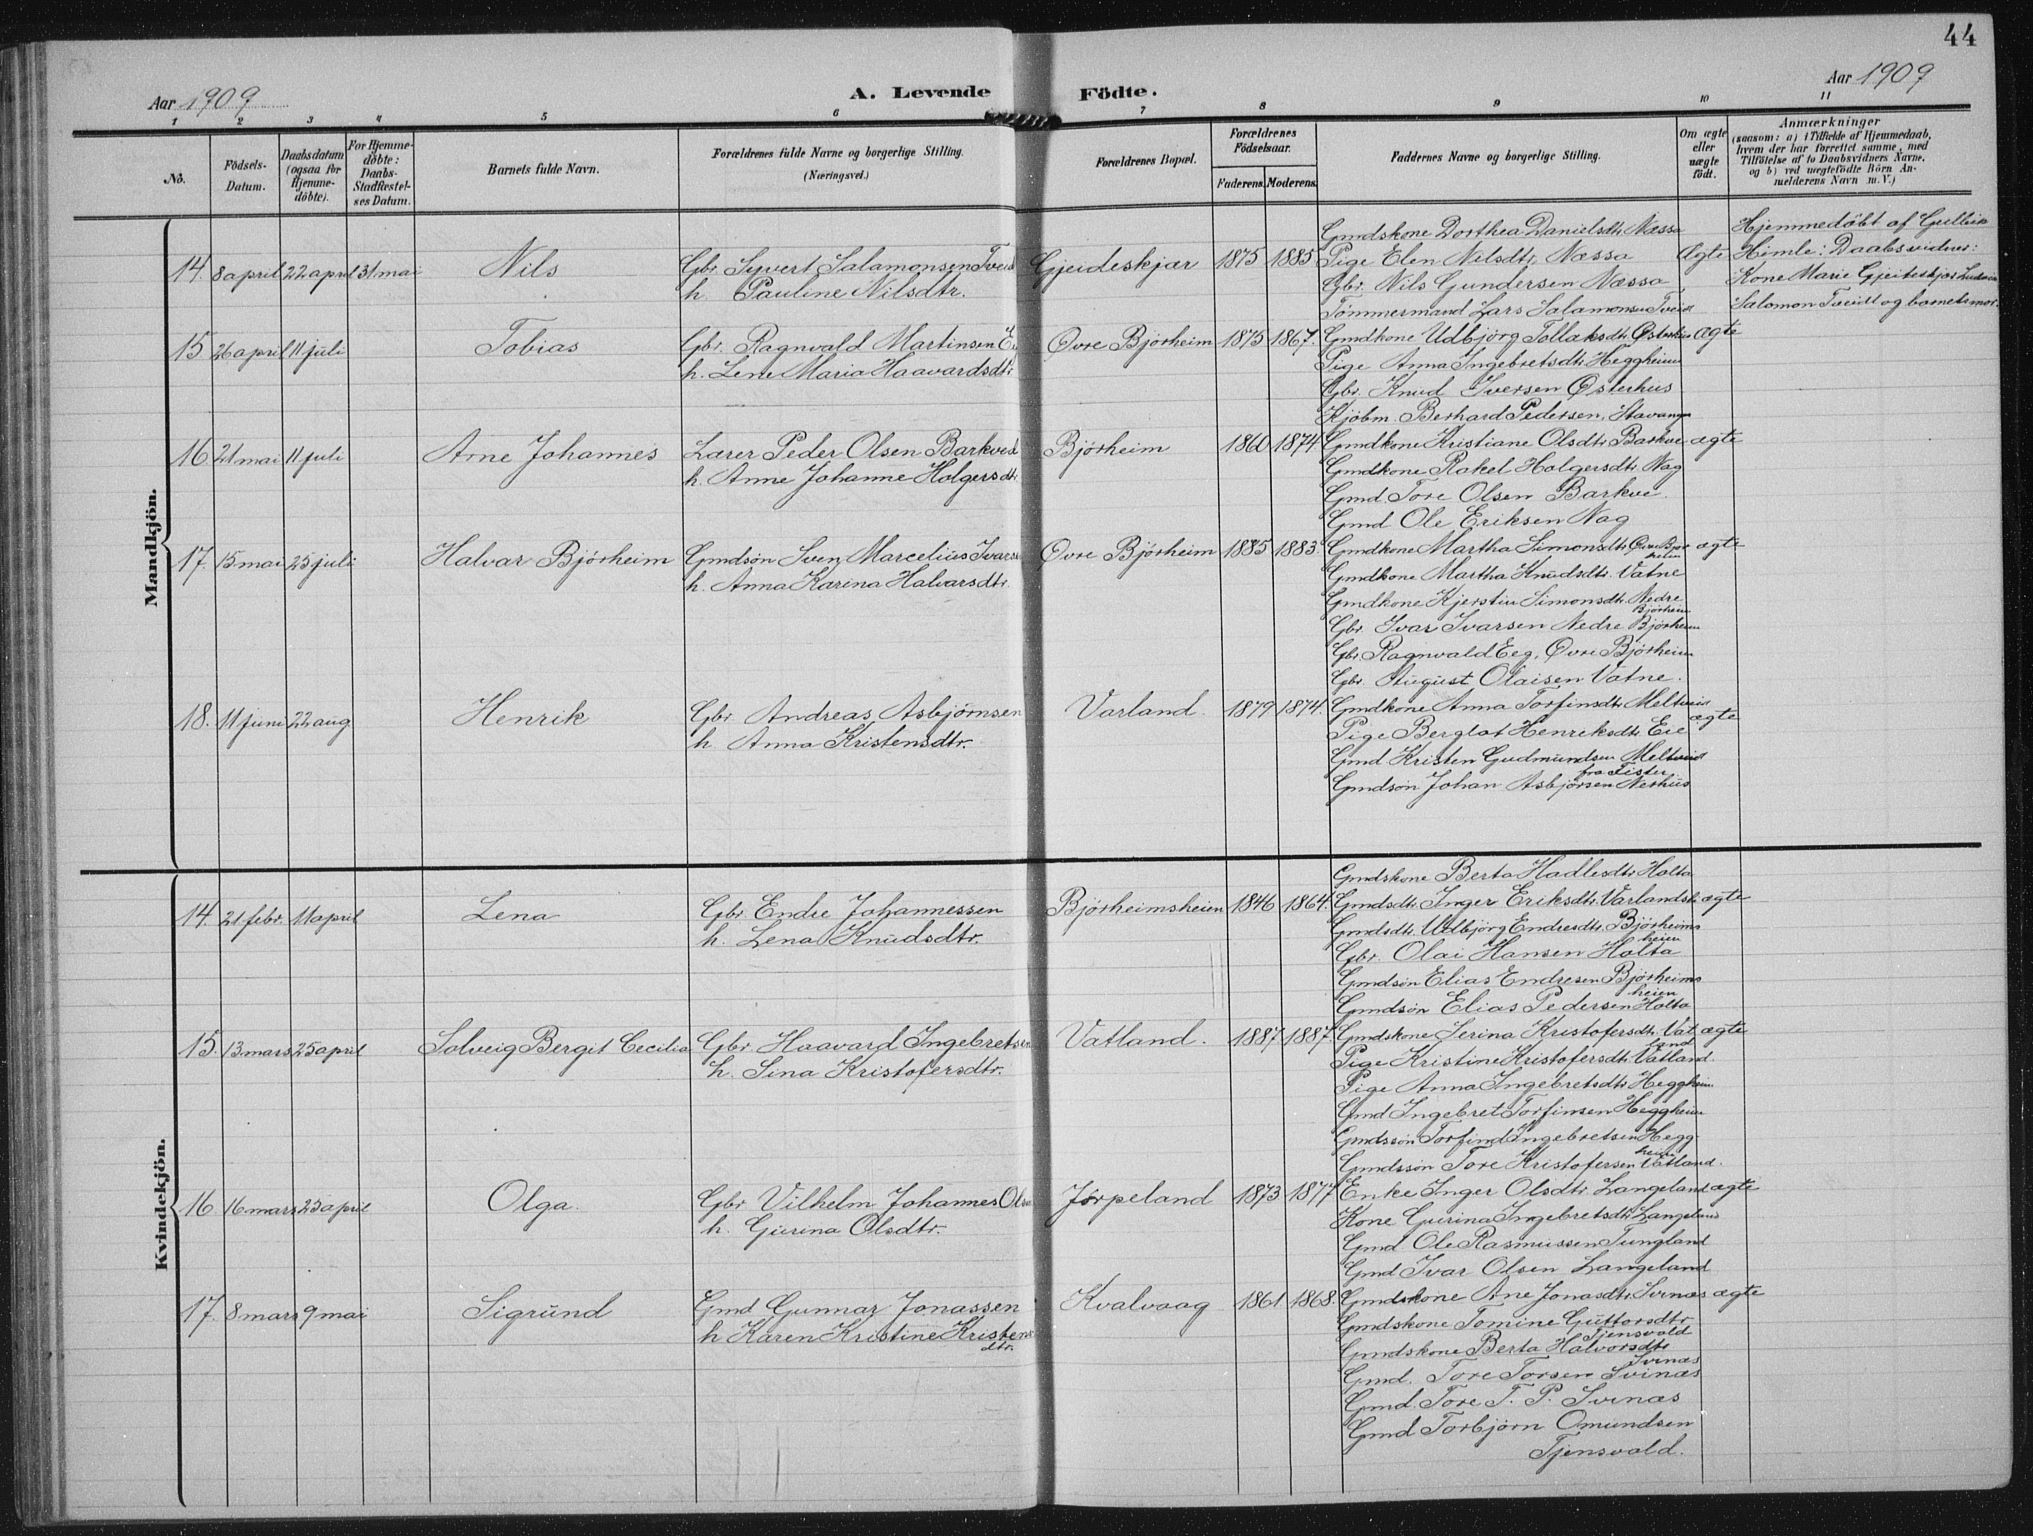 44
Aar 1909
A. Levende Födte.
Aar 1909
1 2 3 4 5 6 7 8 9 10 11
No.
Födsels-Datum.
Daabsdatum (ogsaa for Hjemme-döbte).
For Hjemme-döbte: Daabs-Stadfæstel-ses Datum.
Barnets fulde Navn.
Forældrenes fulde Navne og borgerlige Stilling.
(Næringsvei.)
Forældrenes Bopæl.
Forældrenes Födselsaar.
Faderens. Moderens.
Faddernes Navne og borgerlige Stilling.
Om ægte eller uægte födt.
Anmærkninger
(saasom: a) i Tilfælde af Hjemmedaab,
hvem der har forrettet samme, med
Tilföielse af to Daabsvidners Navne.
og b) ved uægtefödte Börn An-
melderens Navn m. V.)
Mandkjön.
14. 8 april 22 april 31 mai Nils
Gbr. Syvert Salamonsen Tveid
h. Pauline Nilsdtr.
Gjeideskjær 1875 1885
Gmdskone Dorthea Danielsdtr. Næssa
Pige Elen Nilsdtr. Næssa
Gbr. Nils Gundersen Næssa
Tömmermand Lars Salamonsen Tveid
Ægte
Hjemmedöbt af
Himle: Daabsvidner:
Kone Marie
Salomon Tveidt og barnets mor.
15 26 april 11 juli Tobias
Gbr. Ragnvald Martinsen
h. Lene Maria Haavardsdtr.
Övre Björheim 1875 1867.
Gmdkone Udbjörg Tollaksdtr. Österhus ægte
Pige Anna Ingebretsdtr. Heggheim
Gbr. Knud Iversen Österhus
Kjöbm. Berhard Pedersen, Stavanger
16. 21 mai 11 juli Arne Johannes
Lærer Peder Olsen Barkved
h. Anne Johanne Holgersdtr.
Björheim 1860 1874
Gmdkone Kristiane Olsdtr. Barkve ægte
Gmdkone Rakel Holgersdtr. Nag
Gmd. Tore Olsen Barkve.
Gmd Ole Eriksen Nag
17. 15 mai 25 juli Halvar Björheim
Gmdsön Sven Marcelius Ivarsen
h. Anna Karina Halvarsdtr.
Övre Björheim 1885 1883.
Gmdkone Martha Simonsdtr. Övre Björ ægte
heim
Gmdkone Martha Knudsdtr. Vatne
Gmdkone Kjerstin Simonsdtr. Nedre
Björheim
Gbr. Ivar Ivarsen Nedre Björheim
Gbr. Ragnvald Eeg, Övre Björheim
Gbr. August Olaisen Vatne.
18. 11 juni 22 aug Henrik
Gbr. Andreas Asbjörnsen
h. Anna Kristensdtr.
Varland. 1879 1874
Gmdkone Anna Torfinsdtr. Meltveid
ægte
Pige Berglot Henriksdtr. Eie
Gmd. Kristen Gudmundsen Meltveid
fra Fister
Gmdsön Johan Asbjörsen Nerhus
Kvindekjön.
14. 21 febr. 11 april Lena
Gbr. Endre Johannessen
h. Lena Knudsdtr.
Björheimsheien 1846 1864.
Gmdskone Berta Hadlesdtr. Holta
Gmdsdtr. Inger Eriksdtr. Varlands ægte
Gmdsdtr. Udbjörg Endresdtr. Björheims
heien
Gbr. Olai Hansen Holta
Gmdsön Elias Endresen Björheims
heien
Gmdsön Elias Pedersen Holta
15. 13 mars 25 april Solveig Bergit Cecilia
Gbr. Haavard Ingebretsen
h. Sina Kristofersdtr.
Vatland. 1887 1887.
Gmdskone Serina Kristofersdtr. Vat ægte
land
Pige Kristine Kristofersdtr. Vatland.
Pige Anna Ingebretsdtr. Heggheim.
Gmd Ingebret Torfinsen Heggheim
Gmdssön Torfind Ingebretsen Hegg-
heim
Gmdssön Tore Kristofersen Vatland.
16 16 mars 25 april Olga.
Gbr. Vilhelm Johannes Olsen
h. Gurina Olsdtr.
Jörpeland 1873 1877
Enke Inger Olsdtr. Langeland ægte
Kone Gurina Ingebretsdtr. Langeland
Gmd. Ole Rasmussen Tungland
Gmd Ivar Olsen Langeland
17. 8 mars 9 mai Sigrund
Gmd Gunnar Jonassen
h Karen Kristine Kristens
dtr.
Kvalvaag 1861 1868.
Gmdskone Ane Jonasdtr. Svinæs ægte
Gmdskone Tomine Guttorsdtr.
Tjensvold
Gmdskone Berta Halvorsdtr
Svinæs
Gmd. Tore Torsen Svinæs
Gmd. Tore T. P. Svinæs
Gmd Torbjörn Omundsen
Tjensvold.